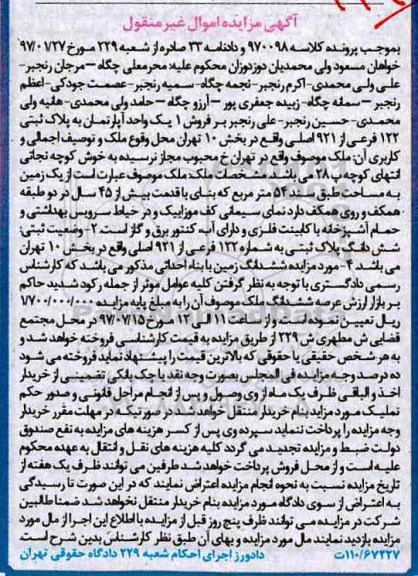 آگهی مزایده اموال غیر منقول
بموجب پرونده کلاسه ۹۷۰۰۹۸ و دادنامه ۳۳ صادره از شعبه ۲۲۹ مورخ ۹۷/۰۱/۲۷
خواهان مسعود ولی محمدیان دوزدوزان محکوم علیه: محرمعلی چگاه – مرجان رنجبر-
علی ولی محمدی-اکرم رنجبر-نجمه چگاه-سمیه رنجبر-عصمت جودکی-اعظم
رنجبر – سمانه چگاه- زبیده جعفری پور – آرزو چگاه – حامد ولی محمدی- هانیه ولی
محمدی- حسین رنجبر- علی رنجبر بر فروش ۱ یک واحد آپارتمان به پلاک ثبتی
۱۲۲ فرعی از ۹۲۱ اصلی واقع در بخش ۱۰ تهران محل وقوع ملک و توصیف اجمالی و
کاربری آن: ملک موصوف واقع در تهران خ محبوب مجاز نرسیده به خوش کوچه نجاتی
انتهای کوچه پ ۲۸ می باشد. مشخصات ملک: ملک موصوف عبارت است از یک زمین
به مساحت طبق سند ۵۴ متر مربع که بنای با قدمت بیش از ۴۵ سال در دو طبقه
همکف و روی همکف دارد نمای سیمانی کف موزاییک و در حیاط سرویس بهداشتی و
حمام آشپزخانه با کابینت فلزی و دارای آب، کنتور برق و گاز است. ۲- وضعیت ثبتی:
شش دانگ پلاک ثبتی به شماره ۱۲۲ فرعی از ۹۲۱ اصلی واقع در بخش ۱۰ تهران
می باشد ۳- مورد مزایده ششدانگ زمین با بناه احداثی مذکور می باشد که کارشناس
رسمی دادگستری با توجه به نظر گرفتن کلیه عوامل موثر از جمله رکود شدید حاکم
بر بازار ارزش عرصه ششدانگ ملک موصوف آن را به مبلغ پایه مزایده ۱/۷۰۰/۰۰۰/۰۰۰
ریال تعیین نموده است و از ساعت ۱۱ الی ۱۲ مورخ ۹۷/۰۷/۱۵ در محل مجتمع
قضایی ش مطهری ش ۲۲۹ از طریق مزایده به قیمت کارشناسی فروخته خواهد شد و
به هر شخص حقیقی یا حقوقی که بالاترین قیمت را پیشنهاد نماید فروخته می شود
ده درصد وجه مزایده فی المجلس بصورت وجه نقد یا چک بانکی تضمینی از خریدار
اخذ و الباقی ظرف یک ماه از وی وصول و پس از انجام مراحل قانونی و صدور حکم
تملیک مورد مزاید بنام خریدار منتقل خواهد شد در صورتیکه در مهلت مقرر خریدار
وجه مزایده را پرداخت ننماید سپرده وی پس از کسر هزینه های مزایده به نفع صندوق
دولت ضبط و مزایده تجدید می گردد کلیه هزینه های نقل و انتقال به عهده محکوم
علیه است و از محل فروش پرداخت خواهد شد طرفین می توانند ظرف یک هفته از
تاریخ مزایده نسبت به نحوه انجام مزایده اعتراض نمایند که در این صورت تا رسیدگی
به اعتراض از سوی دادگاه مورد مزایده بنام خریدار منتقل نخواهد شد ضمنا طالبین
شرکت در مزایده می توانند ظرف پنج روز قبل از مزایده با اطلاع این اجرا از مال مورد
مزایده بازدید نمایند مال مورد مزایده و بهای آن طبق نظر کارشناس بدین شرح است.
۱۱۰/۶۷۳۲۷/ت دادورز اجرای احکام شعبه ۲۲۹ دادگاه حقوقی تهران